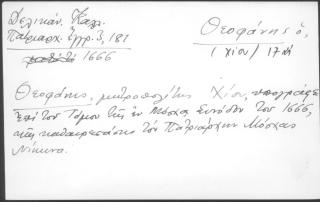 Δελικάν. Καλ.
Πατριαρχ. Ἔγγρ. 3, 181
1666
Θεοφάνης ὁ,
(Χίου) 17 αἰ
Θεοφάνης, μητροπολίτης Χίου, υπογράφει
ἐπί τοῦ Τόμου τῆς ἐν Μόσχᾳ Συνόδου τοῦ 1666,
τῆς καθαιρεσάσης τόν Πατριάρχην Μόσχας
Νίκωνα.